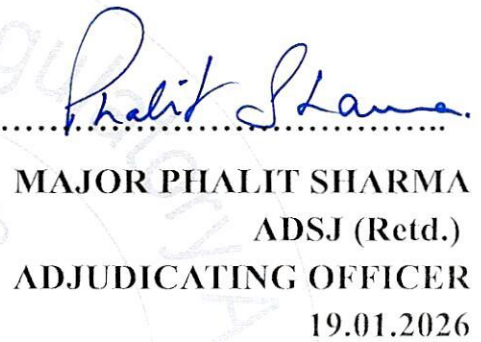 Phalit Sharma.
MAJOR PHALIT SHARMA
ADSJ (Retd.)
ADJUDICATING OFFICER
19.01.2026